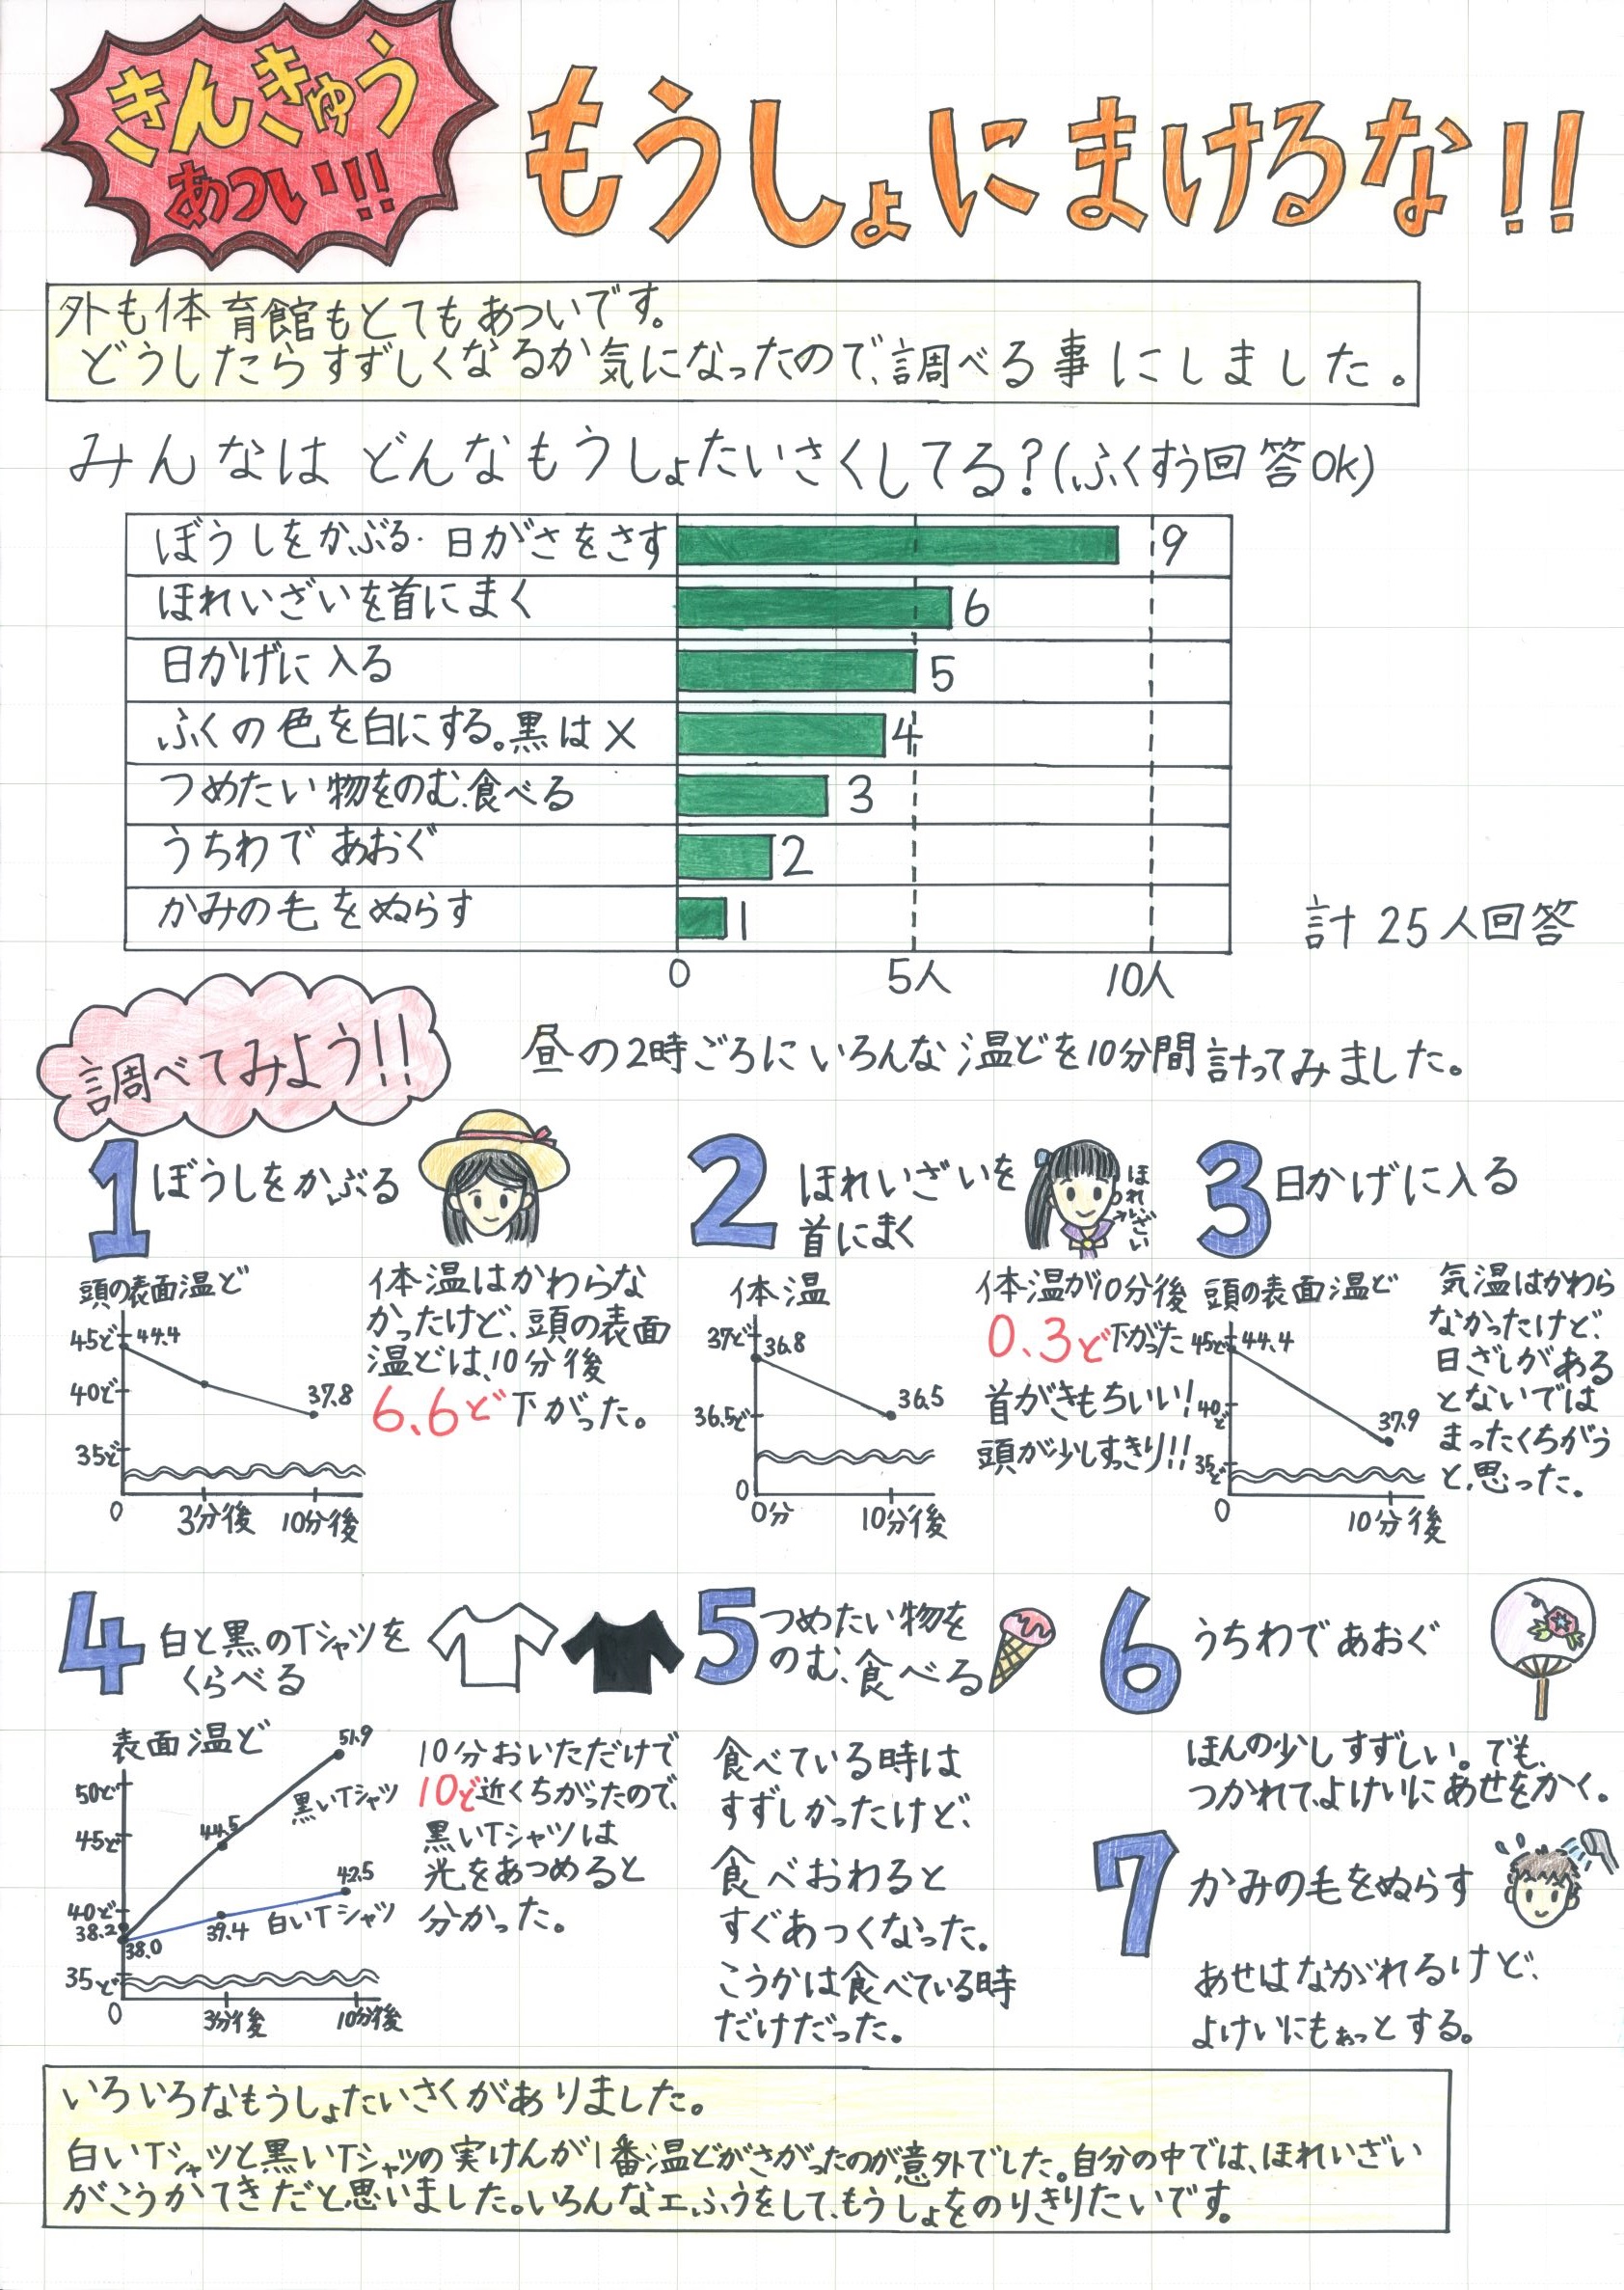 きんきゅう
あつい!!
もうしょにまけるな!!
外も体育館もとてもあついです。
どうしたらすずしくなるか気になったので、調べる事にしました。
みんなはどんなもうしょたいさくしてる?(ふくすう回答OK)
ぼうしをかぶる・日がさをさす 9
ほれいざいを首にまく 6
日かげに入る 5
ふくの色を白にする。黒は× 4
つめたい物をのむ、食べる 3
うちわであおぐ 2
かみの毛をぬらす 1
0 5人 10人
計25人回答
調べてみよう!!
昼の2時ごろにいろんな温どを10分間計ってみました。
1 ぼうしをかぶる
頭の表面温ど
45ど 44.4
40ど
37.8
35ど
0 3分後 10分後
体温はかわらな
かったけど、頭の表面
温どは、10分後
6.6ど下がった。
2 ほれいざいを
首にまく
ほれいざい
体温
37ど 36.8
36.5ど 36.5
0
0分 10分後
体温が10分後
0.3ど下がった
首がきもちいい!
頭が少しすっきり!!
3 日かげに入る
頭の表面温ど
45ど 44.4
40ど
37.9
35ど
0 10分後
気温はかわら
なかったけど、
日ざしがある
とないでは
まったくちがう
と思った。
4 白と黒のTシャツを
くらべる
表面温ど
51.9
50ど
黒いTシャツ
45ど 44.5
42.5
40ど
38.2 39.4 白いTシャツ
38.0
35ど
0 3分後 10分後
10分おいただけで
10ど近くちがったので、
黒いTシャツは
光をあつめると
分かった。
5 つめたい物を
のむ、食べる
食べている時は
すずしかったけど、
食べおわると
すぐあつくなった。
こうかは食べている時
だけだった。
6 うちわであおぐ
ほんの少しすずしい。でも、
つかれて、よけいにあせをかく。
7 かみの毛をぬらす
あせはながれるけど、
よけいにもぁっとする。
いろいろなもうしょたいさくがありました。
白いTシャツと黒いTシャツの実けんが1番温どがさがったのが意外でした。自分の中では、ほれいざい
がこうかてきだと思いました。いろんなエふうをして、もうしょをのりきりたいです。